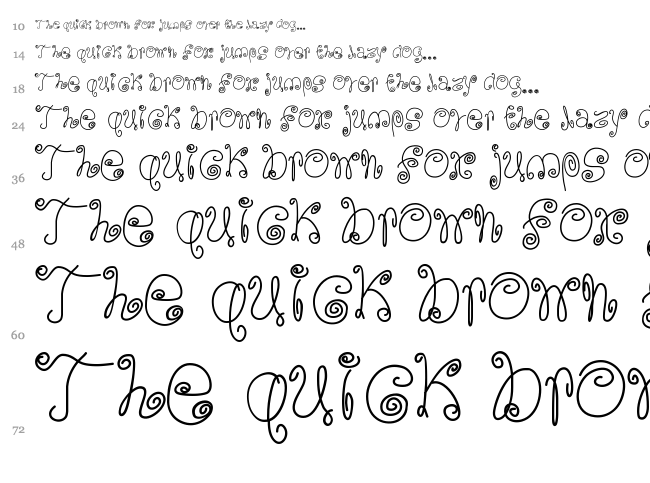 10 The quick brown fox jumps over the lazy dog...
14 The quick brown fox jumps over the lazy dog...
18 The quick brown fox jumps over the lazy dog...
24 The quick brown fox jumps over the lazy d
36 The quick brown fox jumps o
48 The quick brown fox
60 The quick brown
72 The quick brow